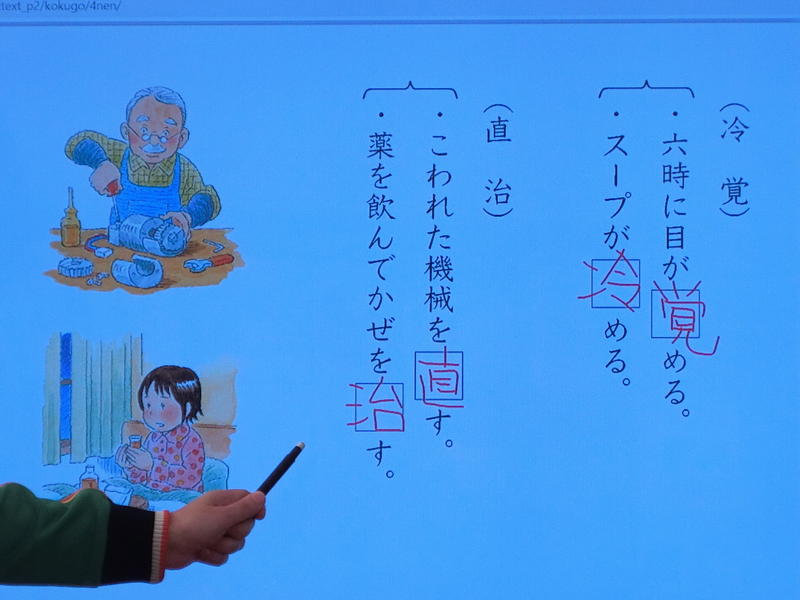 text_p2/kokugo/4nen/
（冷　覚）
・六時に目が覚める。
・スープが冷める。
（直　治）
・こわれた機械を直す。
・薬を飲んでかぜを治す。